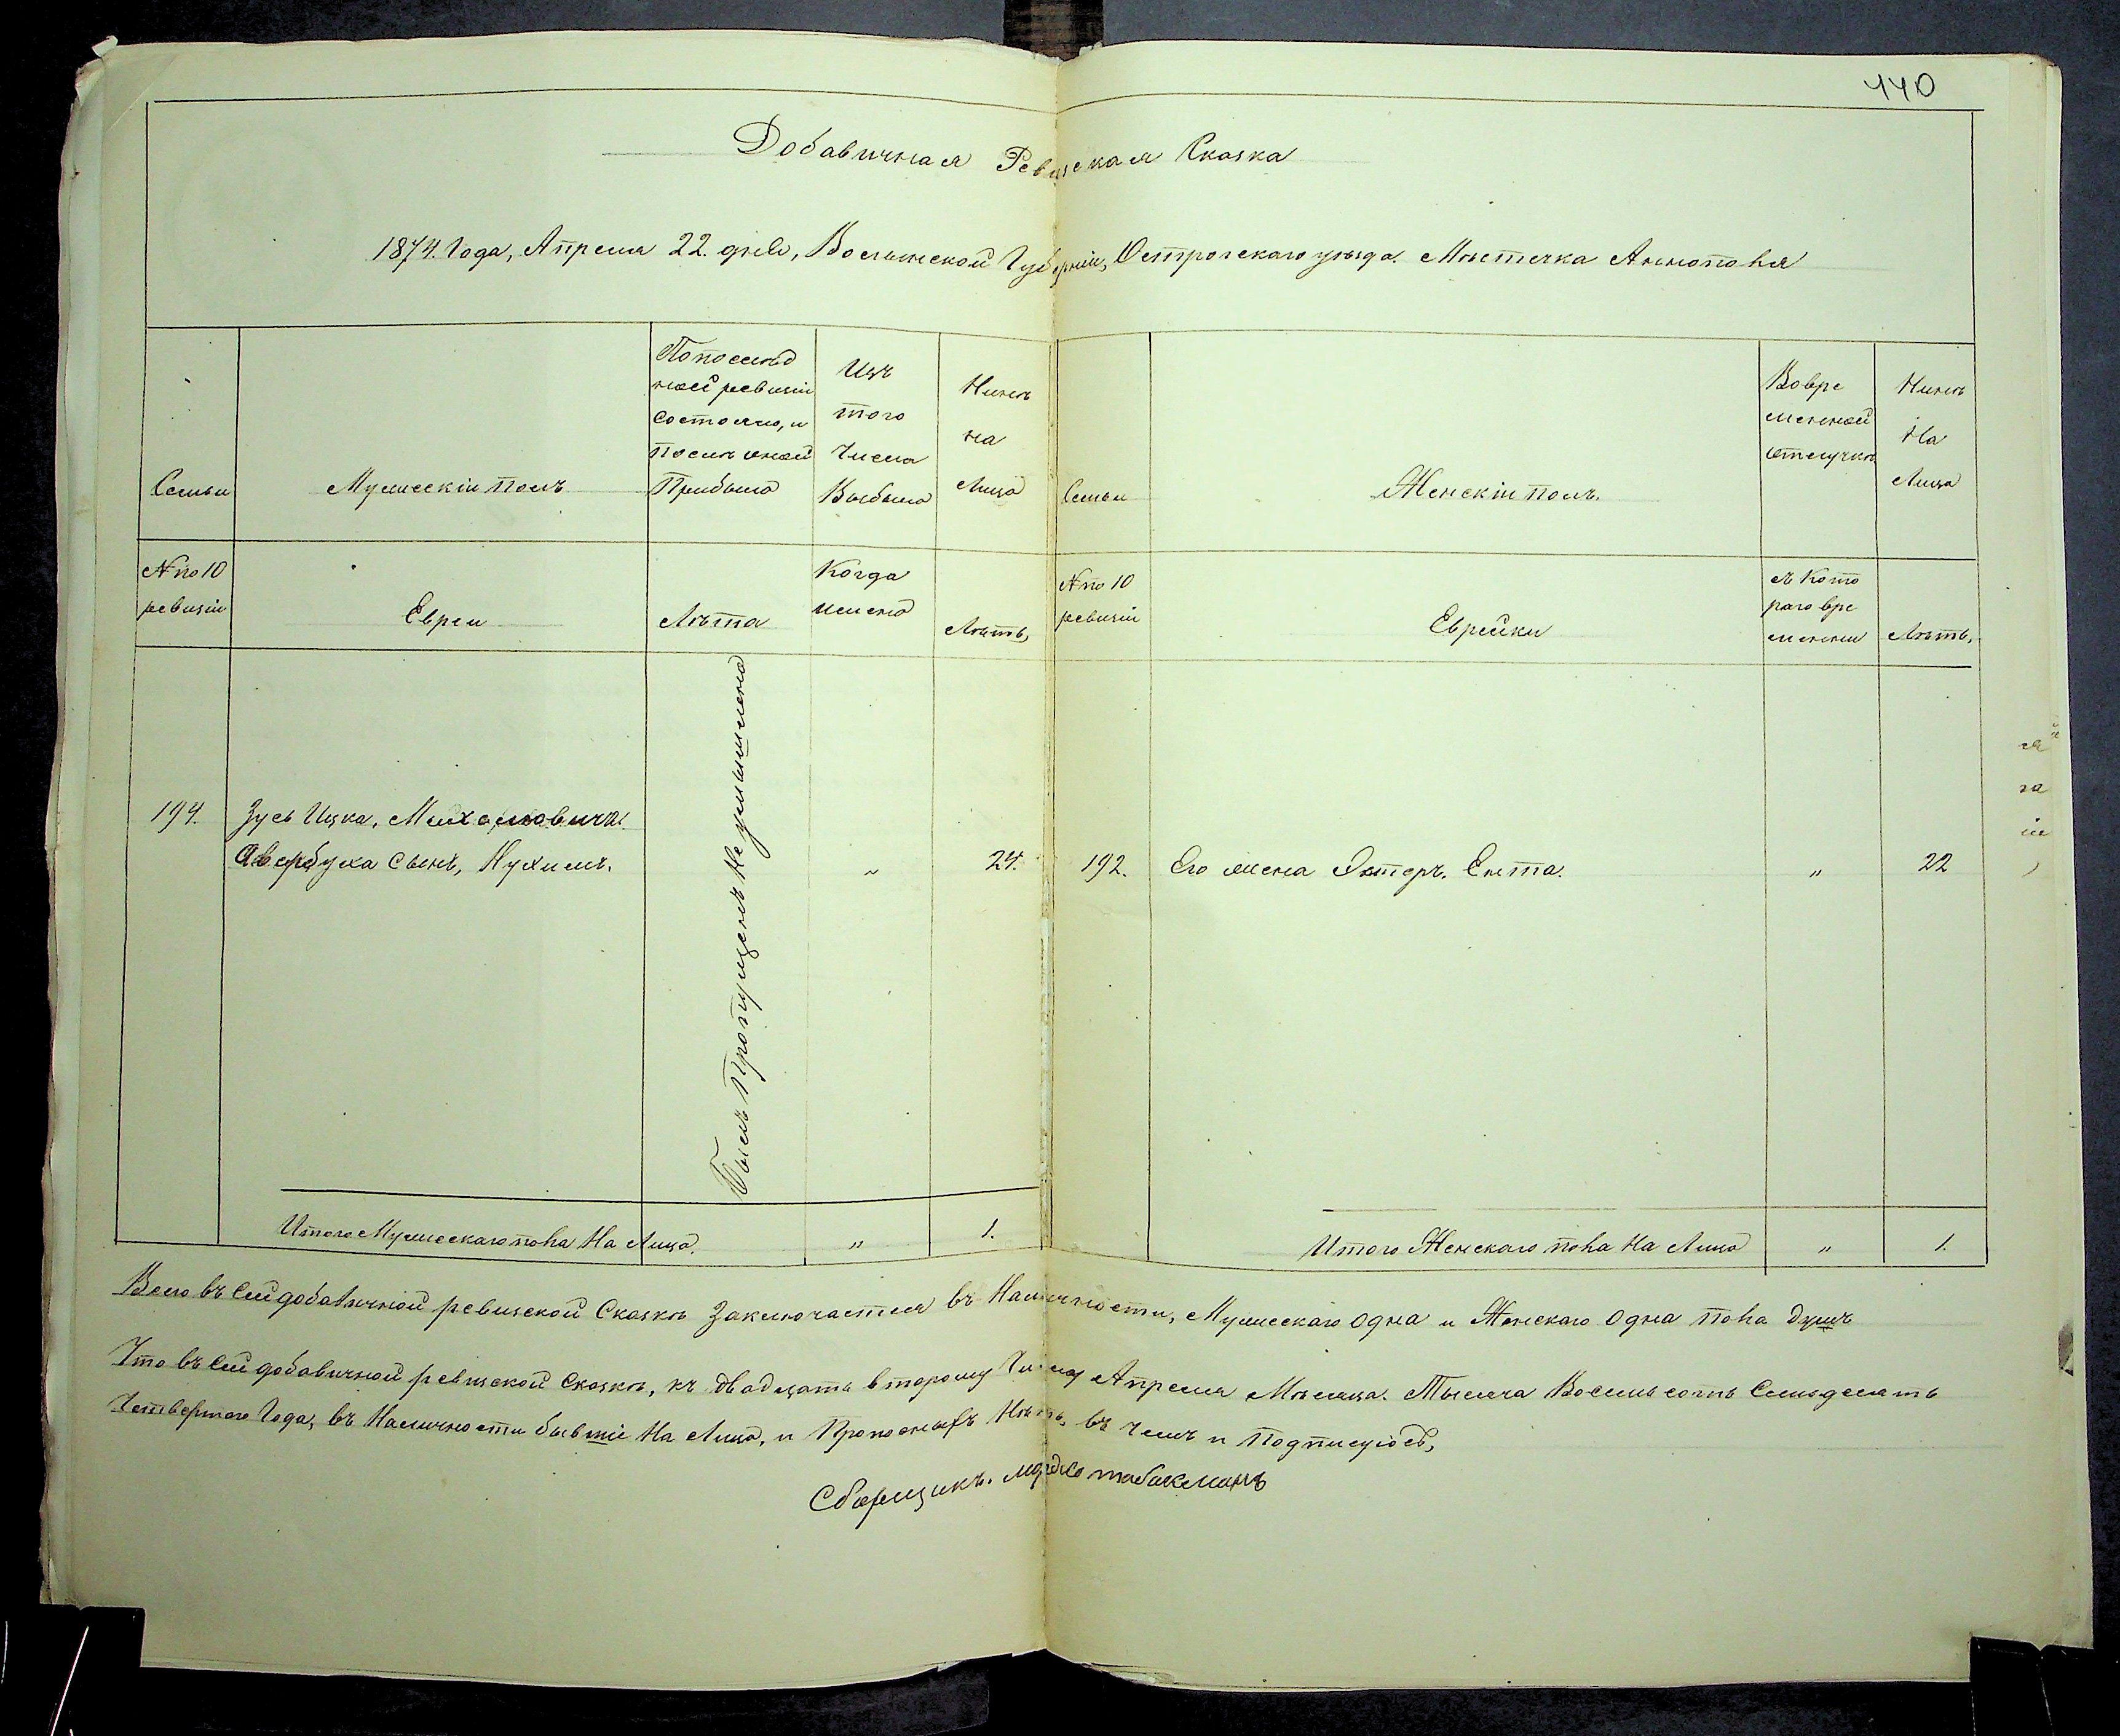 440
Добавичная Ревизская Сказка
1874. Года, Апреля 22. дня, Волынской Губерніи, Острогскаго уѣзда. Мѣстечка Аннополя
Семьи
Мужескій полъ
Попослѣд
ней ревизіи
состояло, и
послѣ оной
Прибыло
Изъ
того
Числа
Выбыло
Нынѣ
на
Лицо
Семьи
Женскій полъ.
Вовре
менной
отлучкѣ
Нынѣ
На
Лицо
№ по 10
ревизіи
Евреи
Лѣта
Когда
именно
Лѣтъ,
№ по 10
ревизіи
Еврейки
съ Кото
раго вре
менни
Лѣтъ,
Былъ Пропущенъ Неумышлено
194.
Зусь Ицка,
Авербуха сынъ, Нухимъ.
„
24.
192.
Его жена Эстеръ. Ента.
„
22
Итого Мужескаго пола На Лицо.
„
1.
Итого Женскаго пола На Лицо
„
1.
Всего въ сей добавичной ревизской Сказкѣ Заключается въ Наличности, Мужескаго одна и Женскаго Одна пола душъ
Что въ сей добавичной ревизской Сказкѣ, къ двадцать второму Числу Апреля Мѣсяца. Тысяча Восемьсотъ Семьдесятъ
Четвертого Года, въ Наличности бывшіе На Лицо, и Прописныхъ Нѣтъ, въ чемъ и Подписуюсь,
Сборщикъ. мордко табакманъ